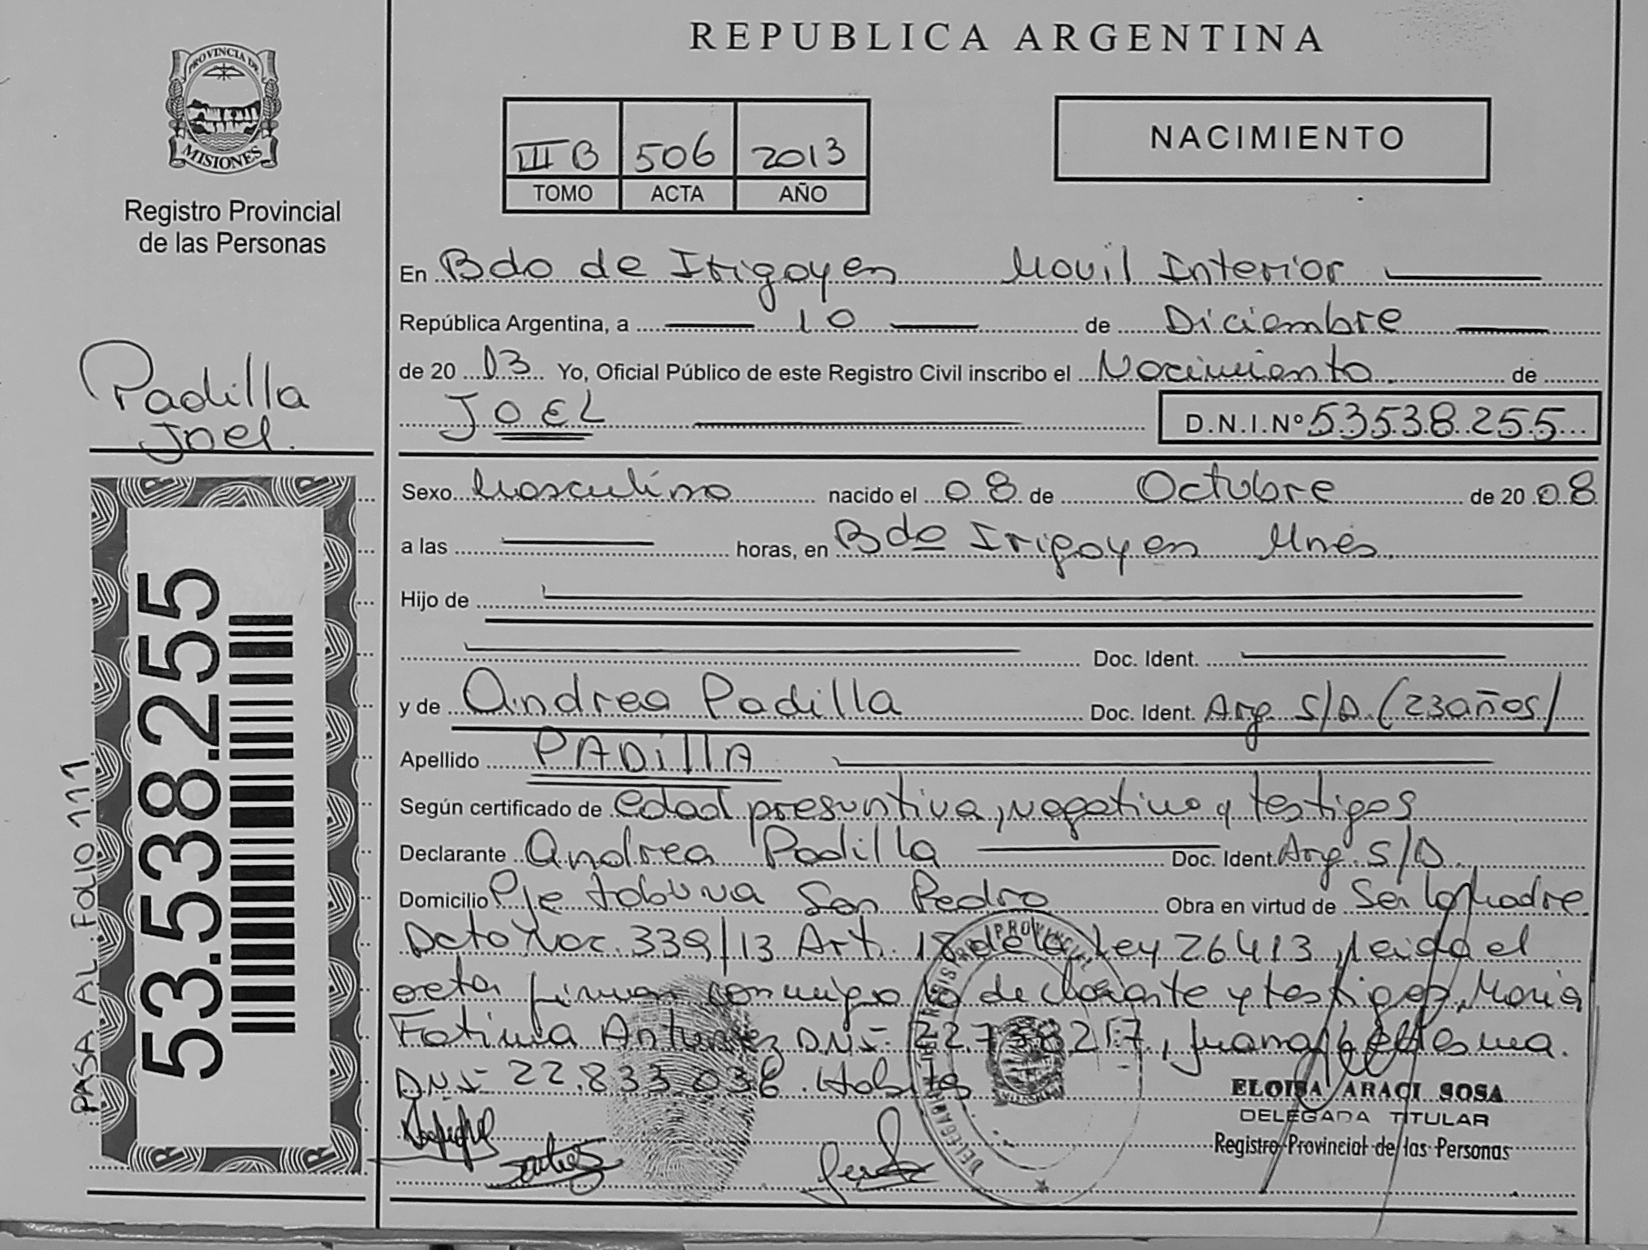 REPUBLICA ARGENTINA
PROVINCIA DE
MISIONES
Registro Provincial
de las Personas
III B 506 2013
TOMO ACTA AÑO
NACIMIENTO
En Bdo de Irigoyen Movil Interior
República Argentina, a 10 de Diciembre
de 2013 Yo, Oficial Público de este Registro Civil inscribo el Nacimiento de
JOEL D.N.I.Nº 53538.255
Padilla
Joel.
Sexo Masculino nacido el 08 de Octubre de 2008
a las horas, en Bdo Irigoyen Mnes
Hijo de
Doc. Ident.
y de Andrea Padilla Doc. Ident. Arg. S/D. (23años/
Apellido PADILLA
Según certificado de edad presuntiva, negativo y testigos
Declarante Andrea Padilla Doc. Ident. Arg. S/D
Domicilio Pje tobuna San Pedro Obra en virtud de Ser la Madre
Dcto Nac. 339/13 Art. 18 de la Ley 26413, leida el
acta, firman conmigo la declarante y testigos, Maria
Fatima Antunez DNI- 22738217, Juana Ledesma.
DNI- 22.833.036. Habiles
ELOISA ARACI SOSA
DELEGADA TITULAR
Registro Provincial de las Personas
53.538.255
PASA AL FOLIO 111
REGISTRO PROVINCIAL